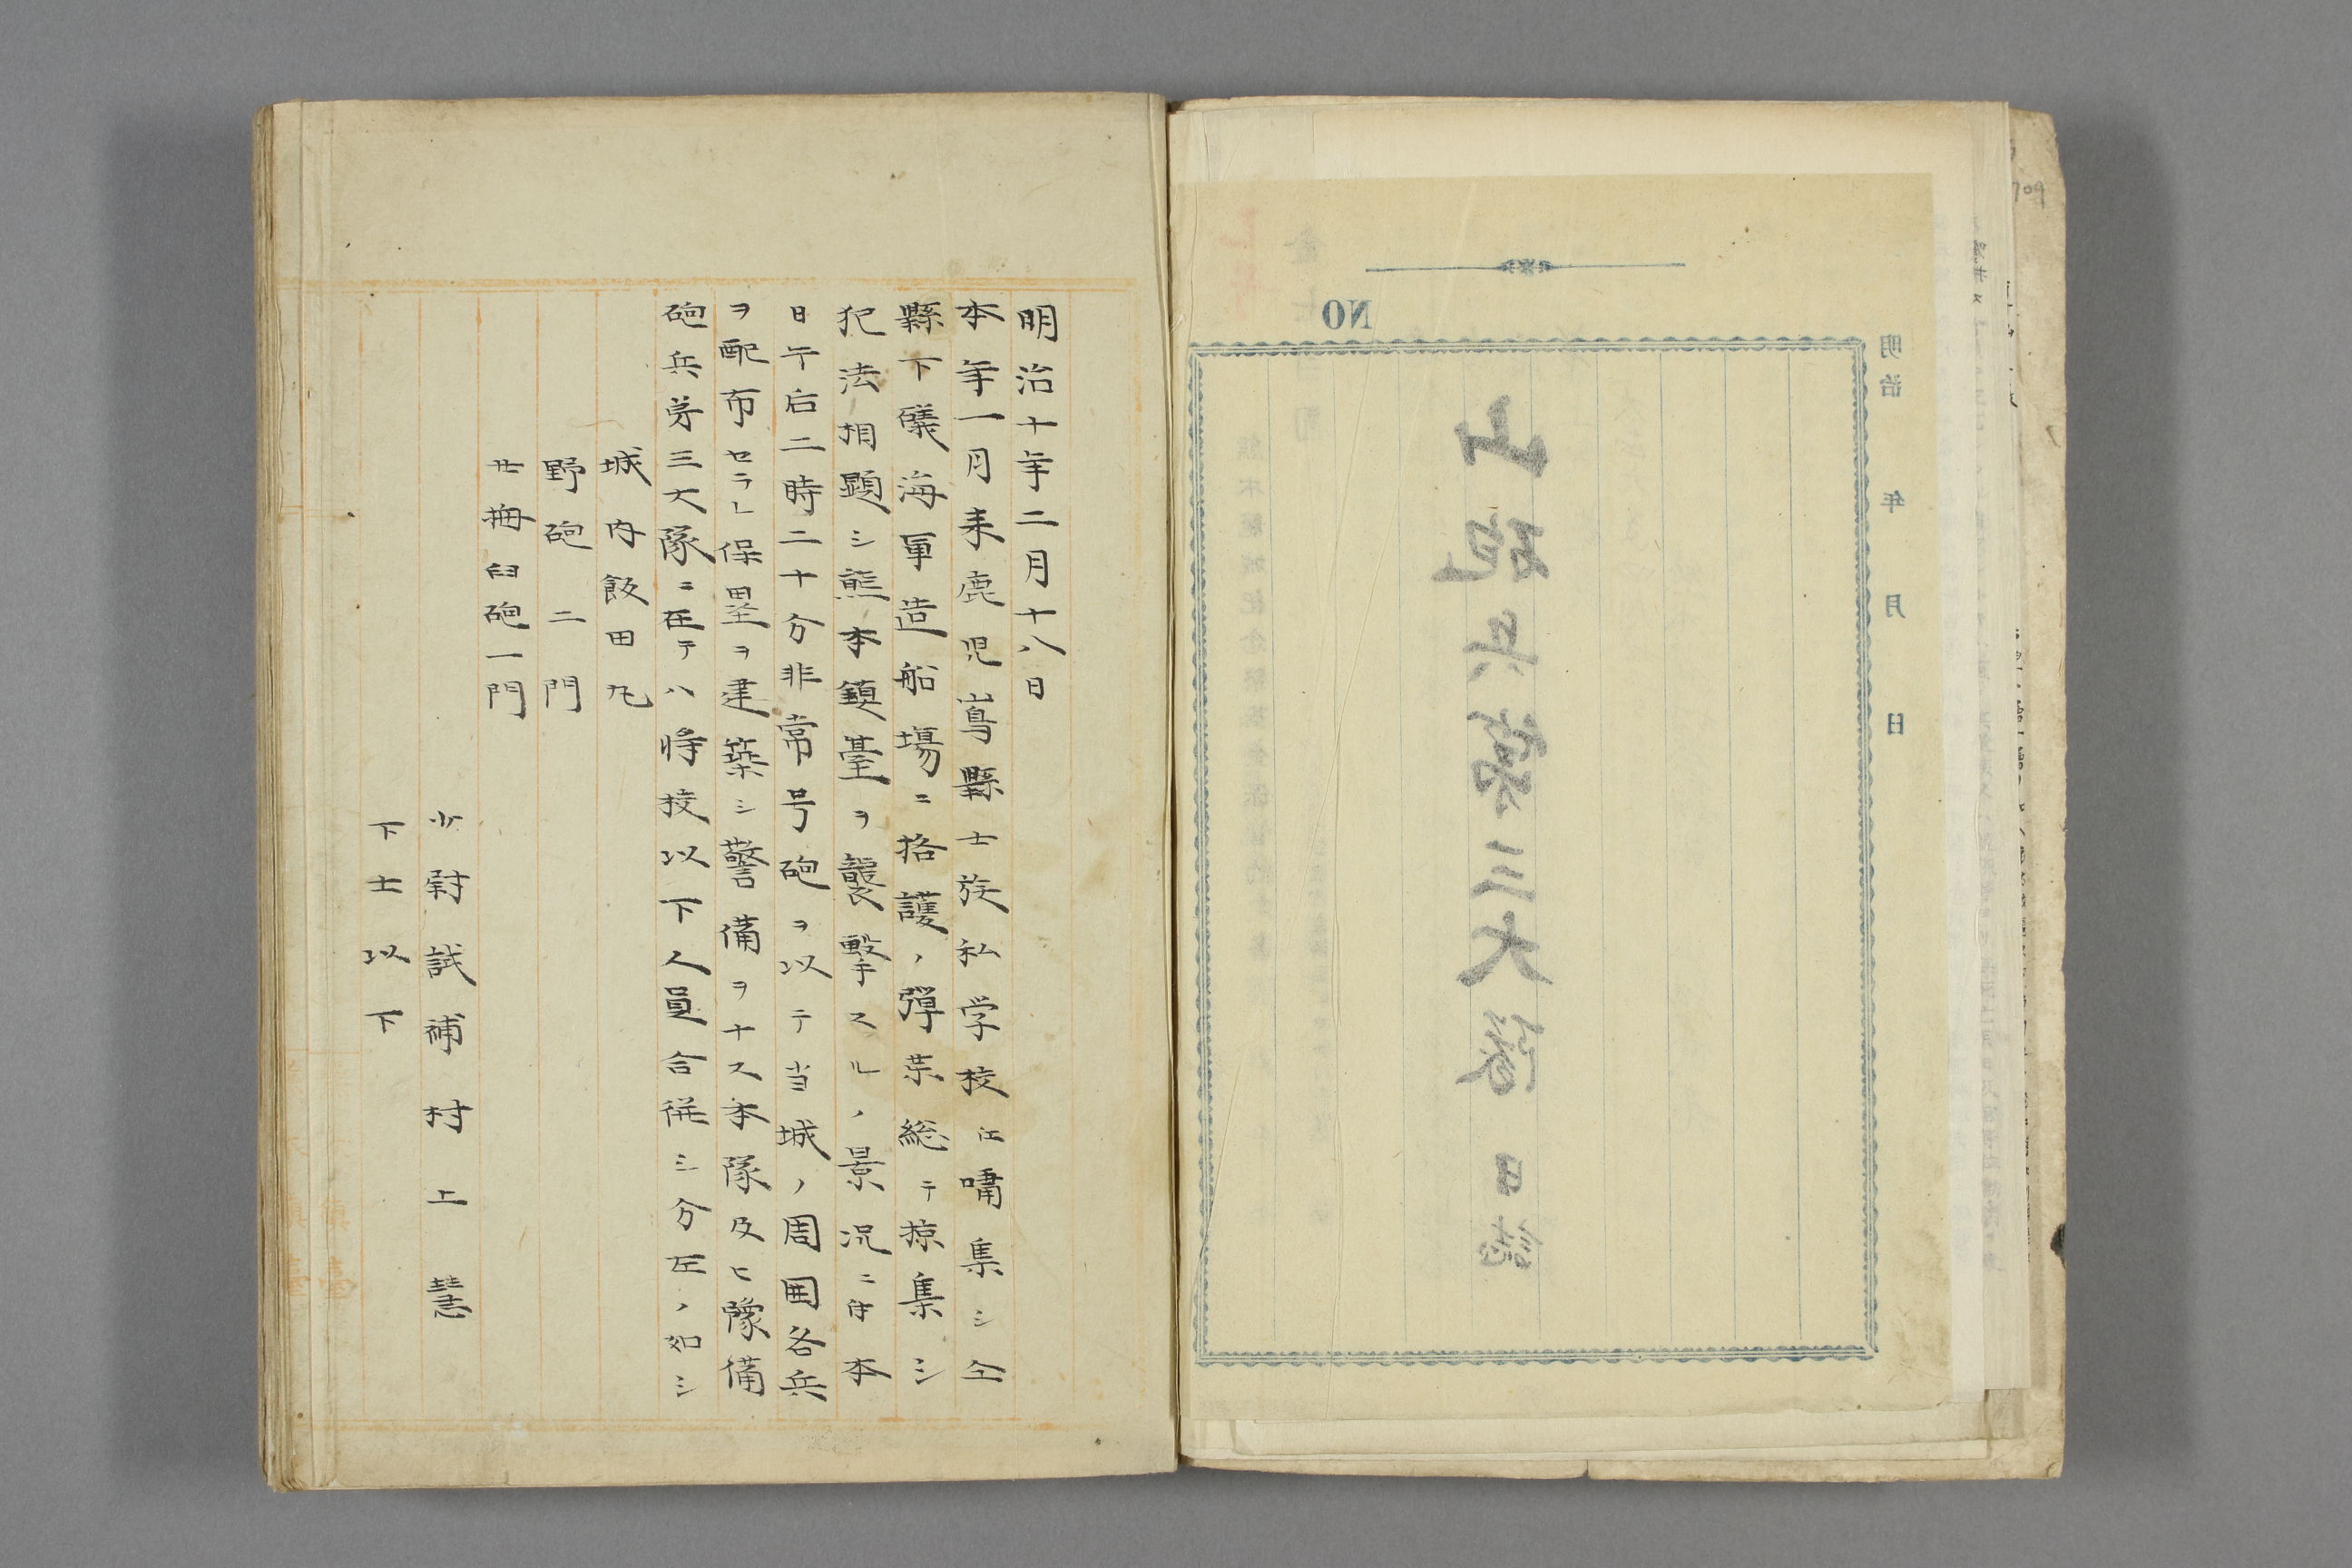 明治 年 月 日
NO
山砲兵第三大隊 日誌
明治十年二月十八日
本年一月来鹿児嶌縣士族私学校江嘯集シ仝
縣下礒海軍造船場ニ格護ノ弾薬総テ掠集シ
犯法相顕シ熊本鎮臺ヲ襲撃スルノ景况ニ付本
日午后二時二十分非常号砲ヲ以テ当城ノ周囲各兵
ヲ配布セラレ保塁ヲ建築シ警備ヲナス本隊及ヒ豫備
砲兵第三大隊ニ在テハ将校以下人員合併シ分在ノ如シ
城内飯田丸
野砲二門
廿拇臼砲一門
少尉試補村上慧
下士以下